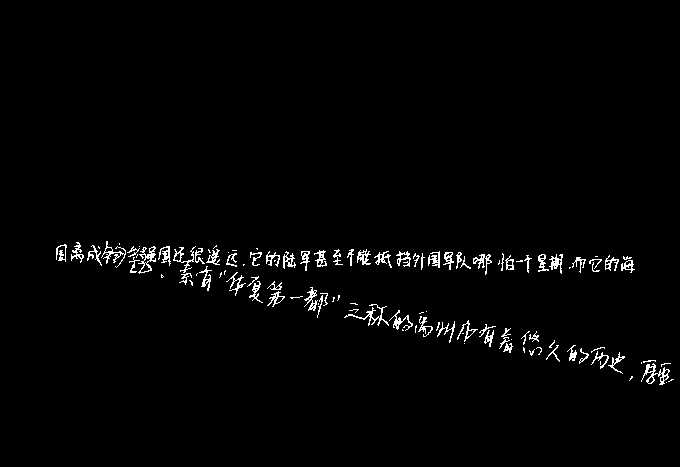 国离成为强国还很遥远.它的陆军甚至不能抵挡外国军队哪怕一个星期.而它的海
。素有“华夏第一都”之称的禹州市有着悠久的历史,厚重